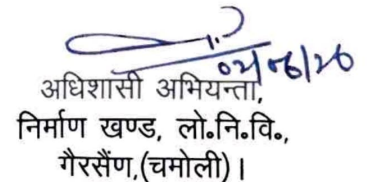 02/06/26
अधिशासी अभियन्ता,
निर्माण खण्ड, लो०नि०वि०,
गैरसैंण,(चमोली)।